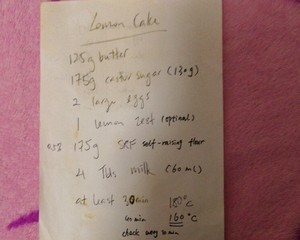 Lemon Cake
125g butter
175g castor sugar (130g)
2 large eggs
1 lemon zest (optional)
175g SRF self-raising flour
4 Tbs milk (60 mL)
at least 30 min 180°C
40 min 160°C
check every 10 min